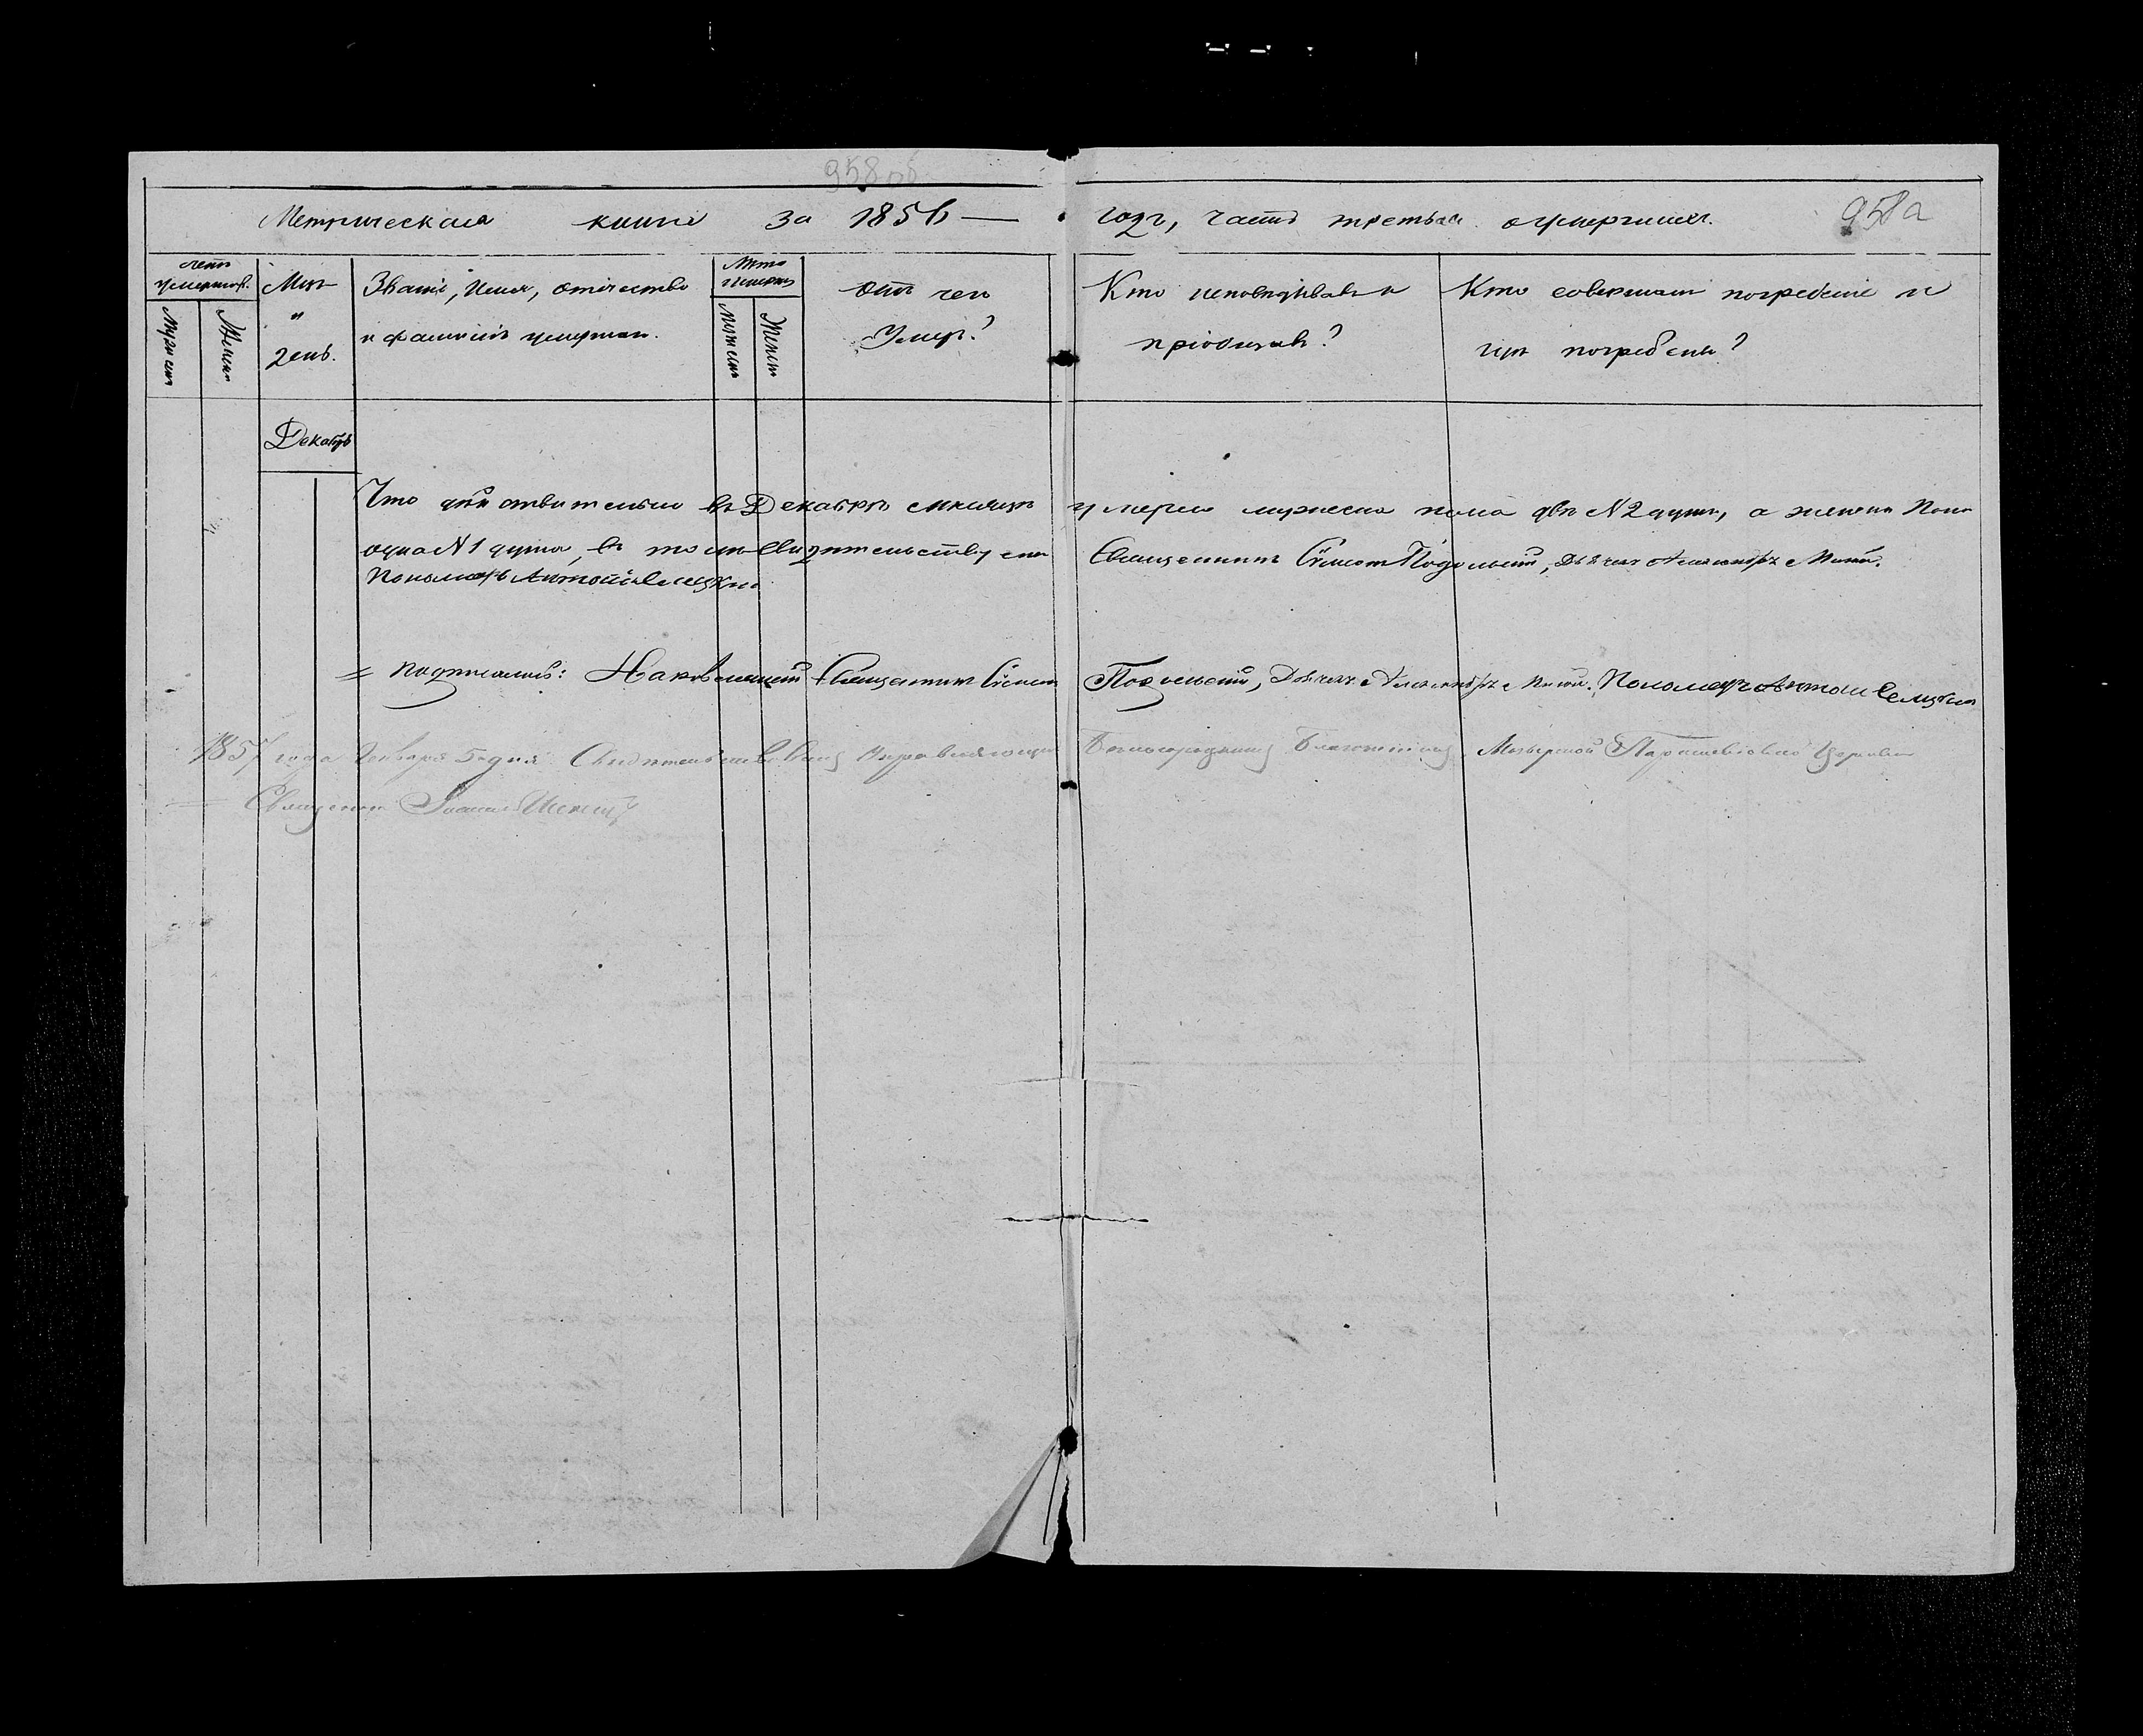 958 об
Метрическая книга за 1856 — годъ, часть третья о умершихъ. 958а
счетъ умершихъ.
Мужеска
Женска
Мѣс. и день.
Званіе, Имя, отечество и фамилія умершаго.
Лѣта умерш.
Мужеск.
Женск.
Отъ чего Умеръ?
Кто исповѣдывалъ и пріобщалъ?
Кто совершалъ погребеніе и гдѣ погребены?
Декабрь
Что дѣйствительно въ Декабрѣ мѣсяцѣ умерло мужеска пола двѣ №2 души, а женска Пола
одна №1 душа, въ томъ свидѣтельствуемъ Священникъ Подольскій, Дьячекъ Александръ
Пономарь Антоній
= Подписались: Священникъ Подольскій, Дьячекъ Александръ Пономарь Антоній
1857 года Января 5 дня Свидѣтельствовалъ Управляющій Благочиніемъ, Мозырской Параскевіевской Церкви
Священникъ